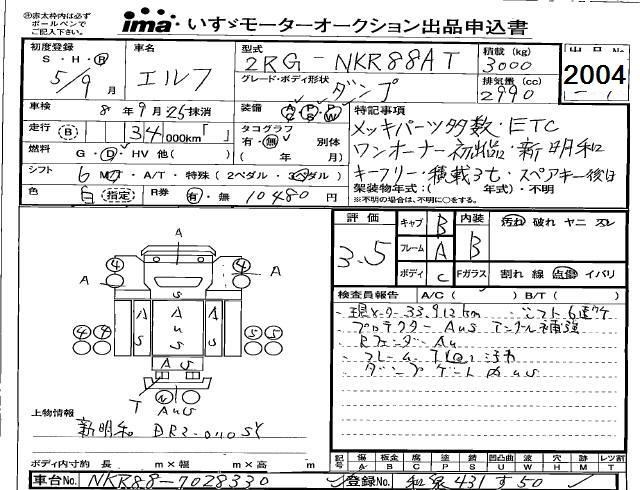 ㊟赤太枠内は必ず
ボールペンで
ご記入下さい。
ima いすゞモーターオークション出品申込書
初度登録
S・H・R
5/9月
車名
エルフ
型式
2RG-NKR88AT
グレード・ボディ形状
ダンプ
積載(kg)
3000
排気量(cc)
2990
出品No.
2004
車検
8年9月25抹消
走行
B
34 000km「 」
燃料
G・D・HV 他( )
シフト
6 MT・A/T・特殊(2ペダル・3ペダル)
色
白 指定
R券
有・無 10480円
装備
AC PS PW
タコグラフ
有・無 別体
( 年 月)
特記事項
メッキパーツ多数・ETC
ワンオーナー初出品・新明和
キーフリー・積載3t・スペアキー後日
架装物年式:( 年式)・不明
※不明の場合は、不明に○をする。
評価
3.5
キャブ B
フレーム A
ボディ C
内装 B
汚れ 破れ ヤニ スレ
Fガラス 割れ 線 点傷 イバリ
検査員報告 A/C( ) B/T( )
・現メーター33.912km ・シフト6速ケ
・プロテクターAUS アングル補強
・RフェンダーAU
・ダンプゲート内US
4 A 4
A A
U
S
4 4 A S A U S A S 5 5
A
U S
T
AUS
上物情報
新明和 DR2-0110SY
ボディ内寸約 長 m×幅 m×高 m
記号
傷 A
板金 B
腐 C
塗 P
錆 S
凹凸曲 U
波 W
穴 H
跡 M
レツ割 T
車台No. NKR88-7028330
登録No. 和泉431す50